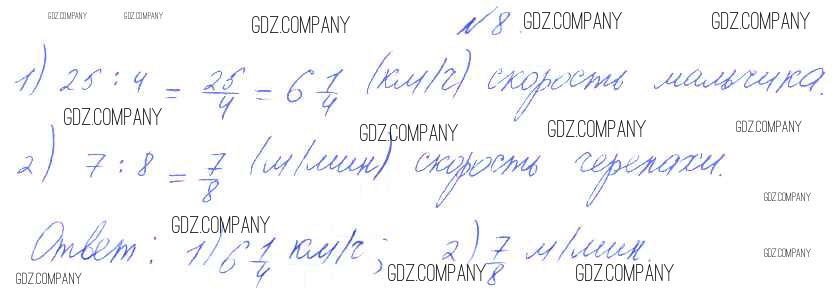 GDZ.COMPANY GDZ.COMPANY GDZ.COMPANY № 8. GDZ.COMPANY GDZ.COMPANY
1) 25 : 4 = 25/4 = 6 1/4 (км/ч) скорость мальчика.
GDZ.COMPANY GDZ.COMPANY GDZ.COMPANY GDZ.COMPANY
2) 7 : 8 = 7/8 (м/мин) скорость черепахи.
GDZ.COMPANY
GDZ.COMPANY
Ответ: 1) 6 1/4 км/ч; 2) 7/8 м/мин.
GDZ.COMPANY
GDZ.COMPANY GDZ.COMPANY GDZ.COMPANY